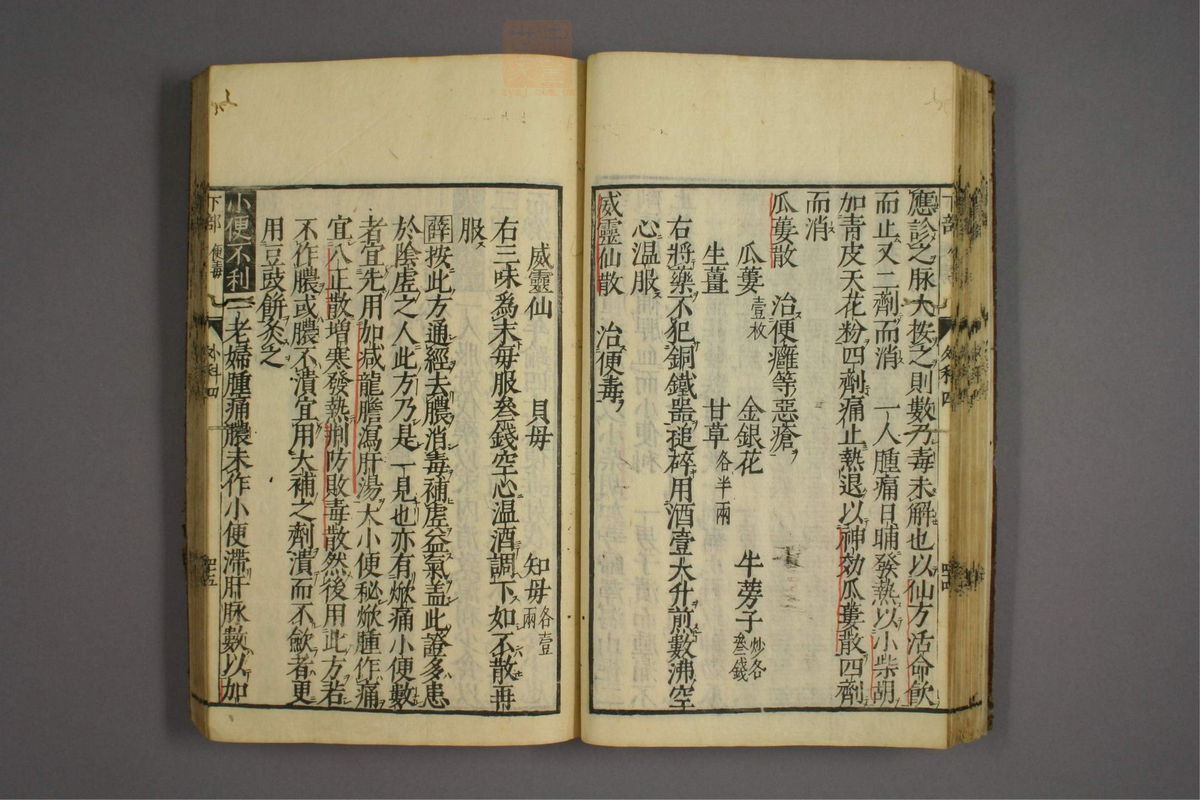 應診之脉大按之則數乃毒未解也以仙方活命飲
而止又二劑而消 一人腫痛日晡發熱以小柴胡
加青皮天花粉四劑痛止熱退以神効瓜蔞散四劑
而消
瓜蔞散 治便癰等惡瘡
瓜蔞壹枚 金銀花 牛蒡子炒各叄錢
生薑 甘草各半兩
右將藥不犯銅鐵器搥碎用酒壹大升煎數沸空
心温服
威靈仙散 治便毒
威靈仙 貝母 知母各壹兩
右三味爲末毎服叄錢空心温酒調下如不散再
服
薛按此方通經去膿消毒補虚益氣盖此證多患
於陰虚之人此方乃是一見也亦有焮痛小便數
者宜先用加减龍膽瀉肝湯大小便秘焮腫作痛
宜八正散増寒發熱荊防敗毒散然後用此方若
不作膿或膿不潰宜用大補之劑潰而不斂者更
用豆豉餅灸之
小便不利 一老婦腫痛膿未作小便滞肝脉數以加
下部 便毒 外科四 四五